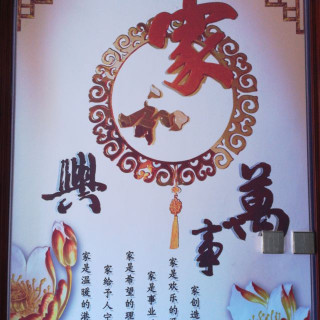 家
和
萬
事
興
家创造
家是欢乐的
家是事业
家是希望的理
家给予人宁
家是温暖的港